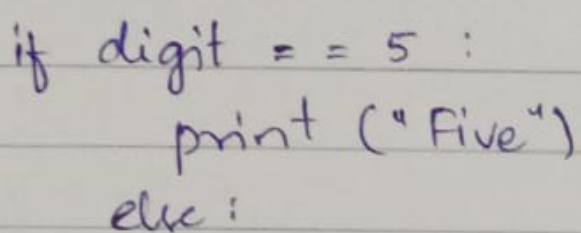 if digit = = 5 :
print ("Five")
else :